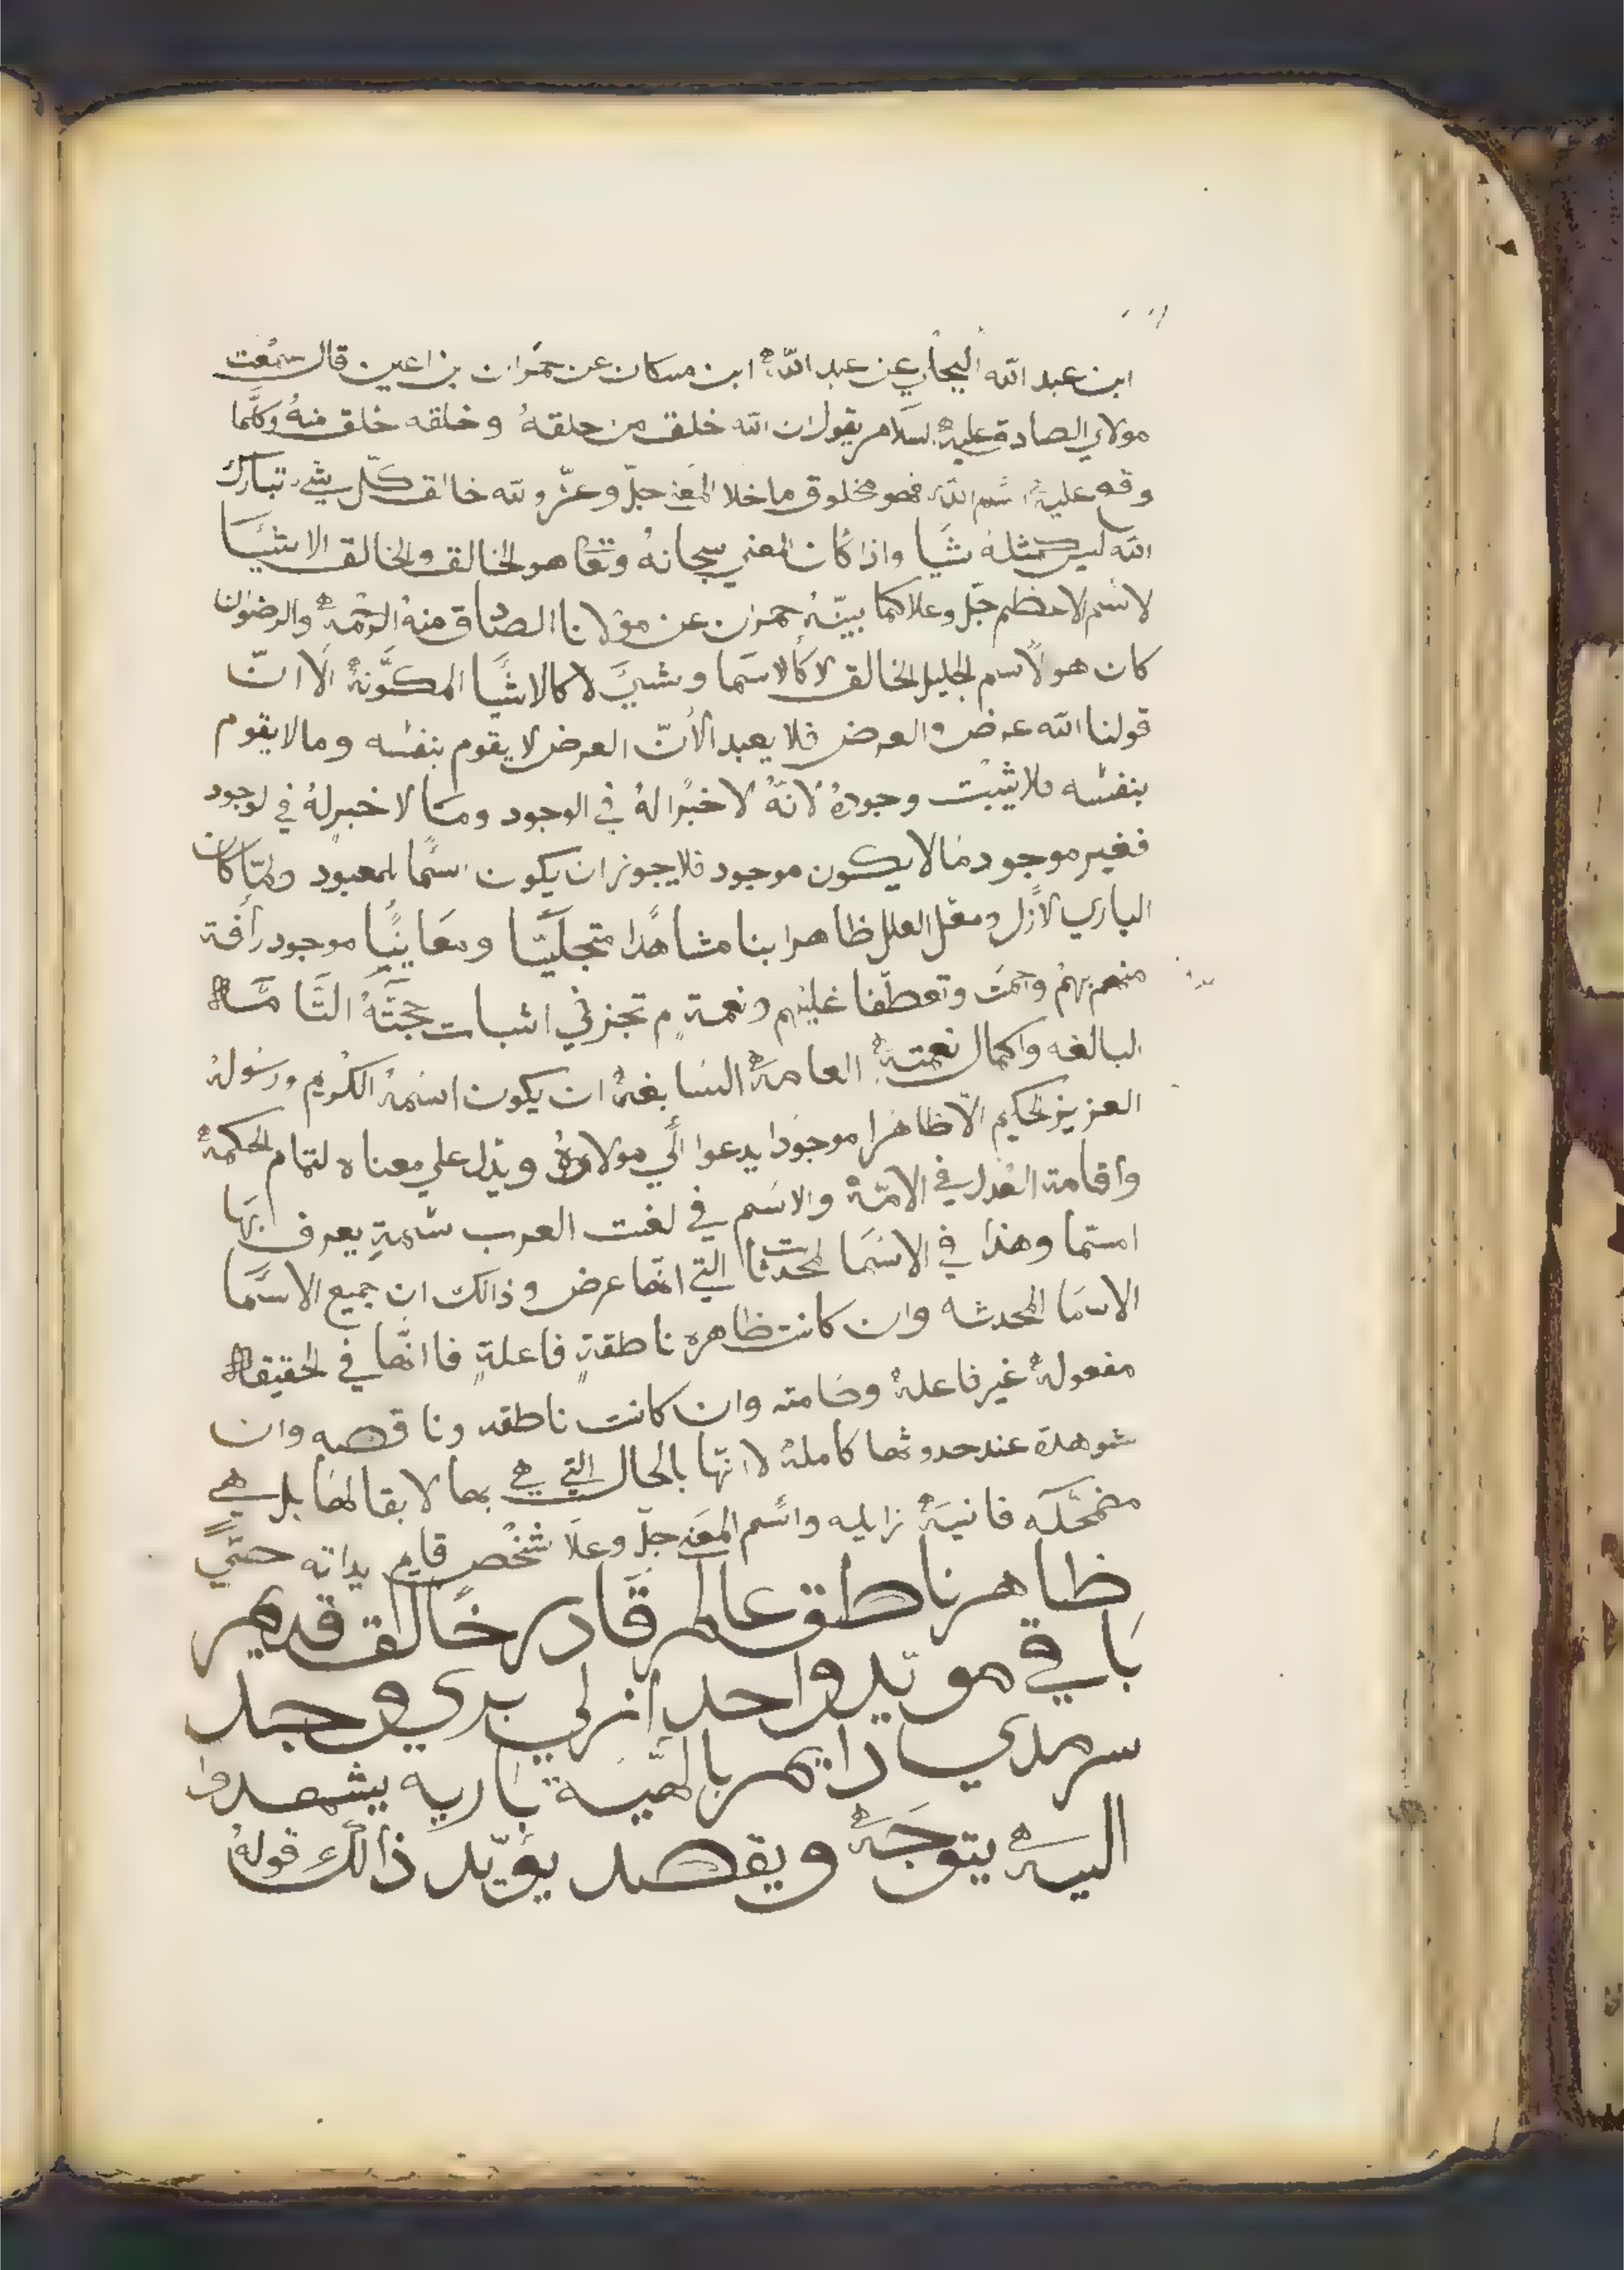 ابن عبد الله البحاري عن عبد الله ابن مسكان عن حمران بن اعين قال سمعت
مولاي الصادق عليه السلام يقول ان الله خلق من خلقه وخلقه خلق منه وكلما
وقع عليه اسم الله فهو مخلوق ما خلا المعنى جل وعز والله خالق كل شي تبارك
الله ليس كمثله شيا واذا كان المعني سبحانه وتعا هو الخالق والخالق الاشيا
لاسم الاعظم جل وعلا كما بينه حمران عن مولانا الصادق منه الرحمة والرضوان
كان هو لاسم الجليل الخالق لا كالاسما وشيئ لا كالاشيا المكونة الا ان
قولنا الله عرض والعرض فلا يعبد الأن العرض لا يقوم بنفسه وما لا يقوم
بنفسه فلا يثبت وجوده لانه لا خبرا له في الوجود وما لا خبر له في لوجود
فغير موجود مالا يكون موجود فلا يجوز ان يكون اسما لمعبود ولما كان
الباري لازل ومعل العلل ظاهرا بنا مشاهدا متجليا ومعاينيا موجود رأفة
منه بهم وتعطفا عليهم ونعمة م تجز في اثبات حجته التامة
البالغه واكمال نعمته العامة السابغة ان يكون اسمه الكريم ورسوله
العزيز لحكيم الا ظاهرا موجودا يدعوا الي مولاه ويدل علي معناه لتمام الحكمة
وأقامة العدل في الامة والاسم في لغت العرب سمة يعرف بها
استما وهذا في الاسما المحدثات التي انها عرض وذالك ان جميع الاسما
الاسما المحدثه وان كانت ظاهره ناطقة فاعلة فاانها في الحقيقة
مفعولة غير فاعلة وصامته وان كانت ناطقه وناقصه وان
شوهدة عند حدوثها كاملة لانها بالحال التي هي بها لا بقا لها بل هي
مضمحله فانية زايله واسم المعنى جل وعلا شخص قايم بداته حي
ظاهر ناطق عالم قادر خالق قديم
باقي مويد واحد أزلي بدي وجد
سرمدي دايم بالهية باريه يشهدوا
اليه يتوجه ويقصد يؤيد ذالك قوله